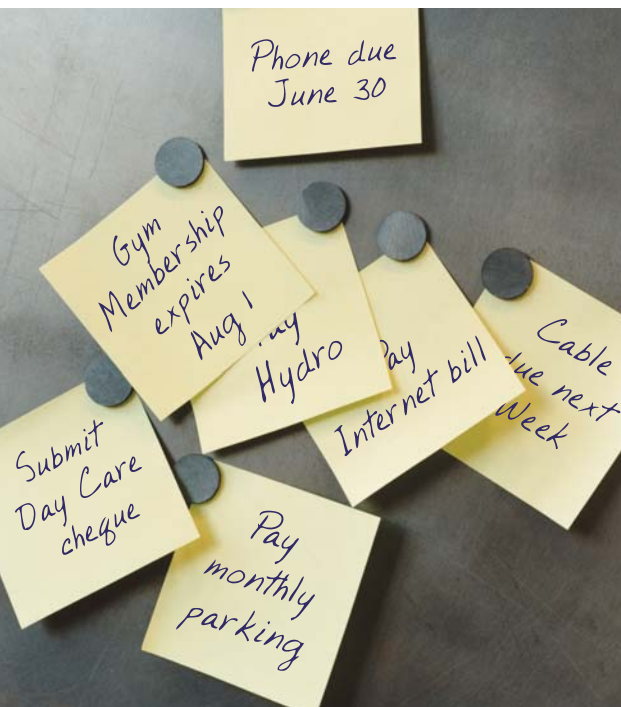 Phone due
June 30
Gym
Membership
expires
Aug 1
Pay
Hydro
Pay
Internet bill
Cable
due next
Week
Submit
Day Care
cheque
Pay
monthly
parking